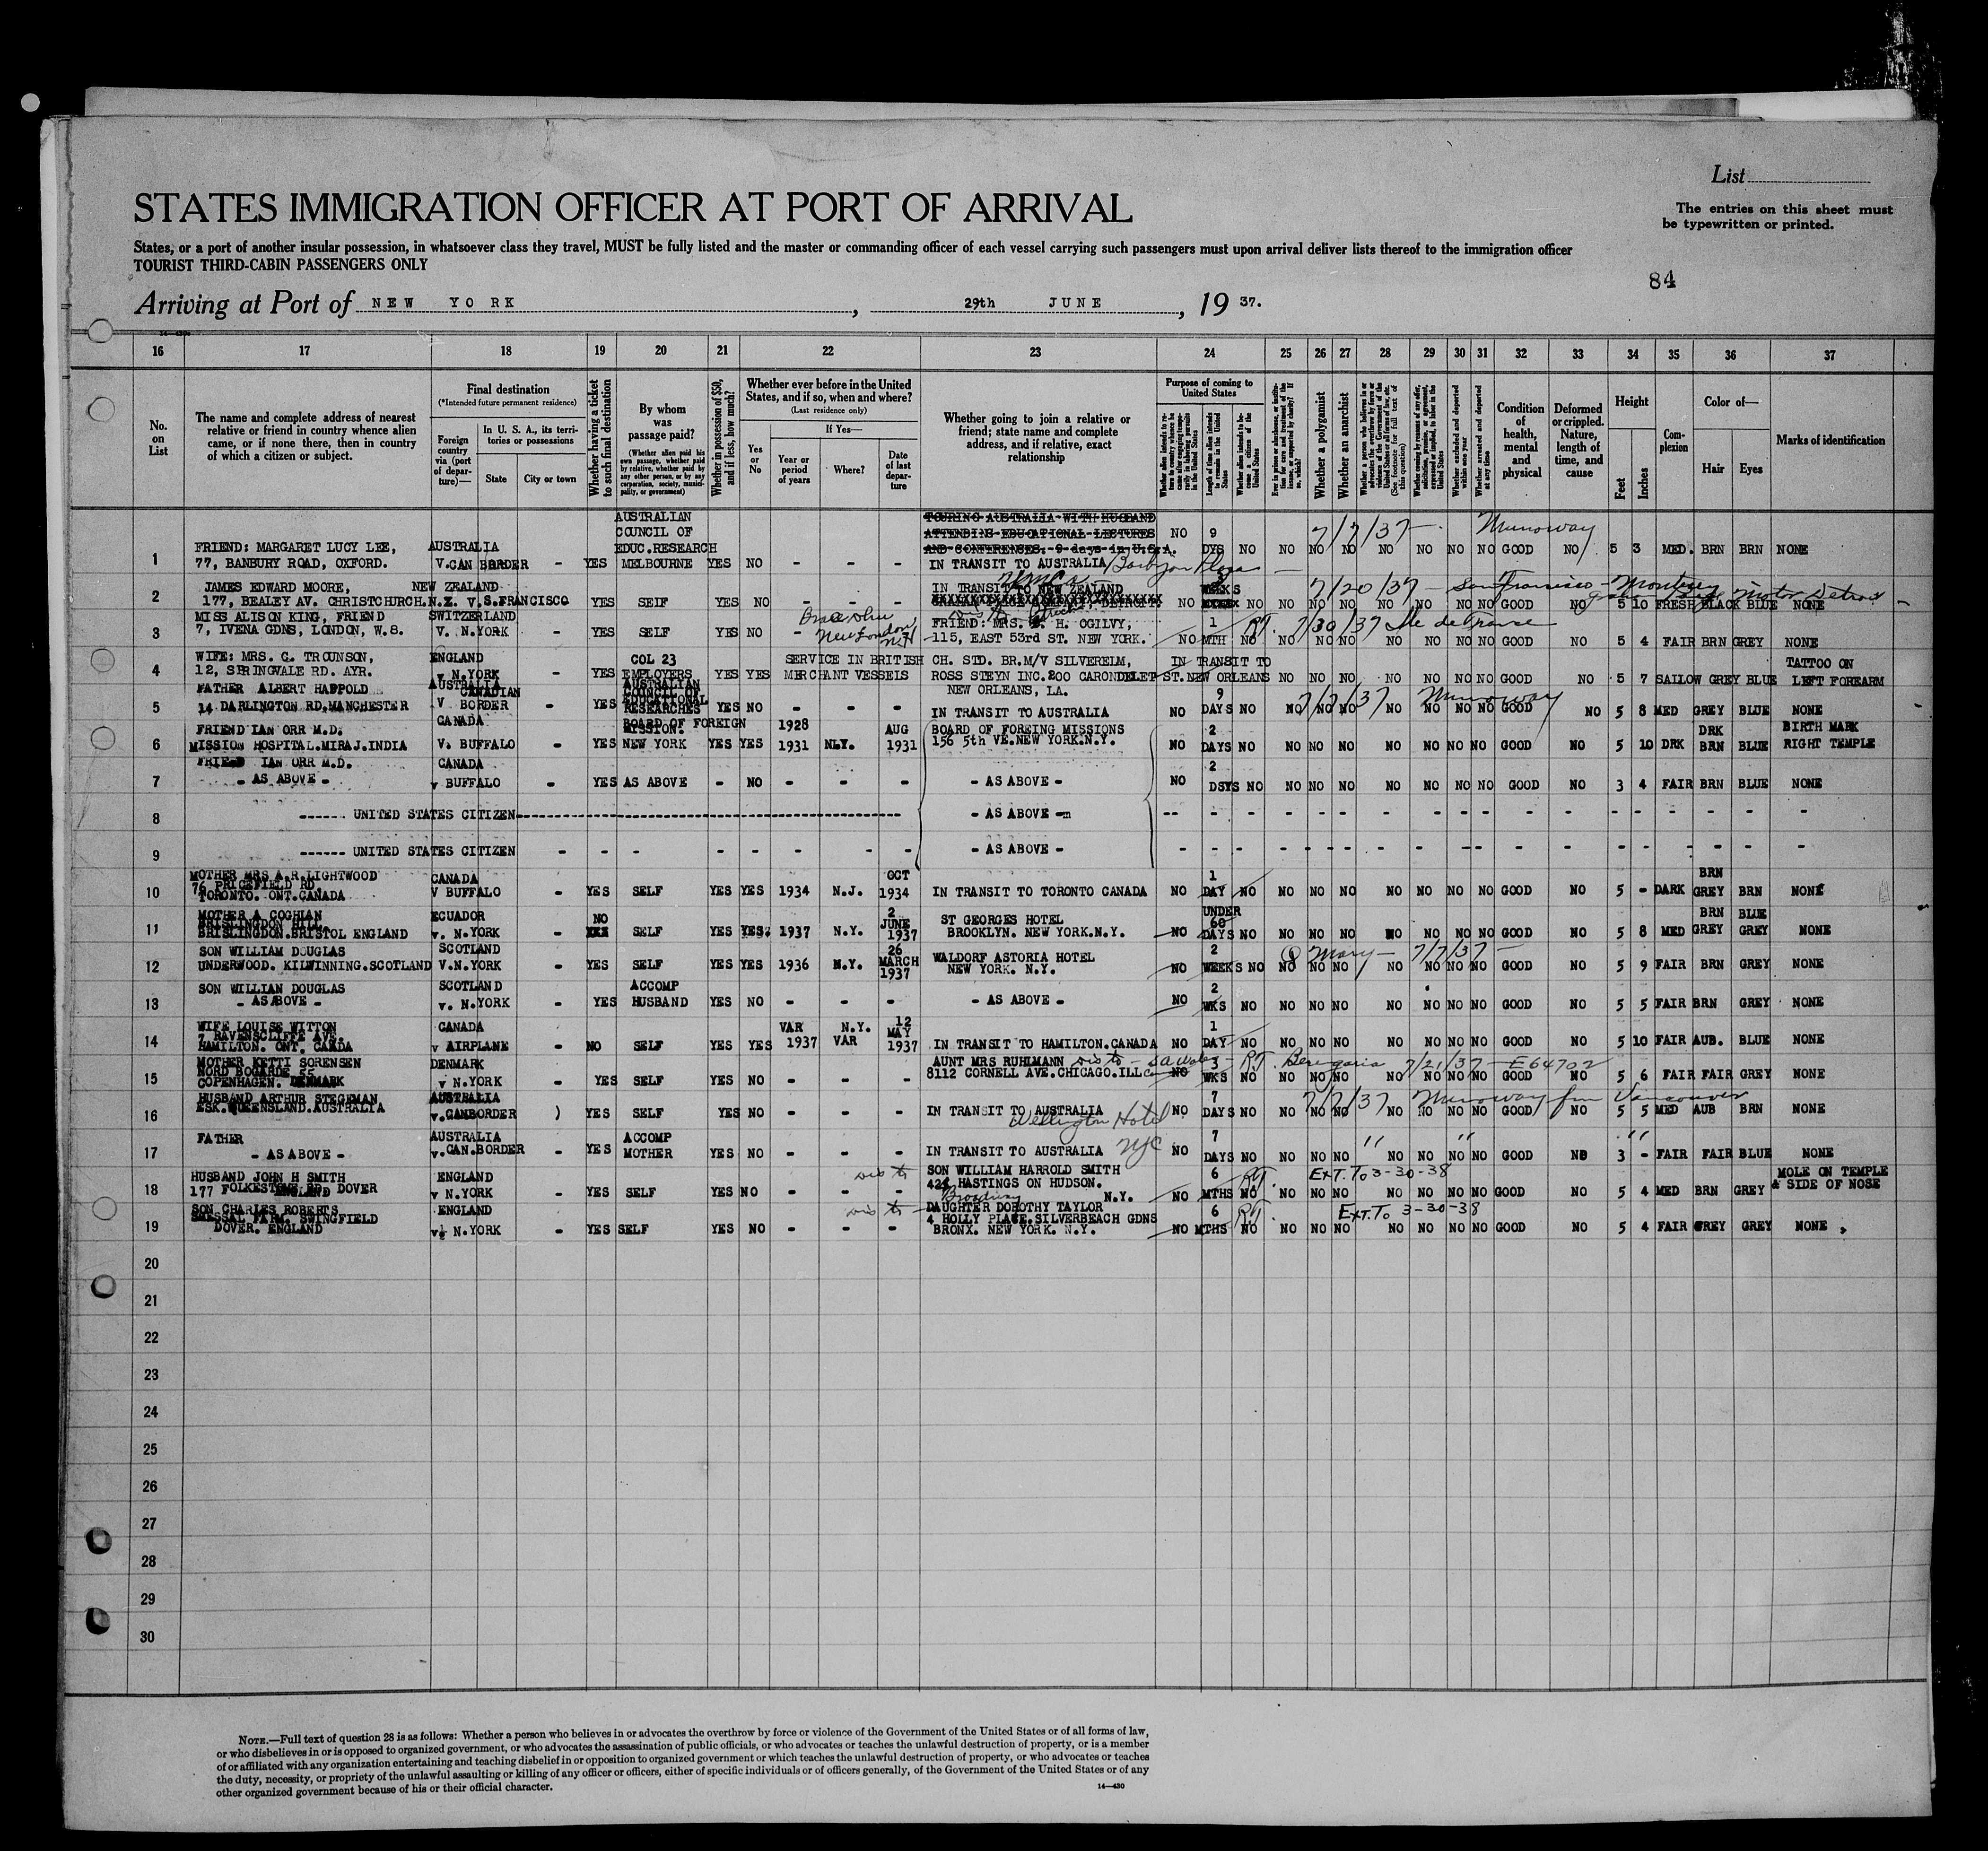 List
STATES IMMIGRATION OFFICER AT PORT OF ARRIVAL
The entries on this sheet must
be typewritten or printed.
States, or a port of another insular possession, in whatsoever class they travel, MUST be fully listed and the master or commanding officer of each vessel carrying such passengers must upon arrival deliver lists thereof to the immigration officer
TOURIST THIRD-CABIN PASSENGERS ONLY
84
Arriving at Port of NEW YORK, 29th JUNE, 19 37.
16 17 18 19 20 21 22 23 24 25 26 27 28 29 30 31 32 33 34 35 36 37
No. on List
The name and complete address of nearest relative or friend in country whence alien came, or if none there, then in country of which a citizen or subject.
Final destination
(*Intended future permanent residence)
Foreign country via (port of departure)—
In U. S. A., its territories or possessions
State
City or town
Whether having a ticket to such final destination
By whom was passage paid?
(Whether alien paid his own passage, whether paid by relative, whether paid by any other person, or by any corporation, society, municipality, or government)
Whether in possession of $50, and if less, how much?
Whether ever before in the United States, and if so, when and where?
(Last residence only)
Yes or No
If Yes—
Year or period of years
Where?
Date of last departure
Whether going to join a relative or friend; state name and complete address, and if relative, exact relationship
Purpose of coming to United States
Length of time alien intends to remain in the United States
Whether a polygamist
Whether an anarchist
Whether excluded and deported within one year
Whether arrested and deported at any time
Condition of health, mental and physical
Deformed or crippled. Nature, length of time, and cause
Height
Feet
Inches
Complexion
Color of—
Hair
Eyes
Marks of identification
1 FRIEND: MARGARET LUCY LEE, 77, BANBURY ROAD, OXFORD. AUSTRALIA V.CAN BORDER - YES AUSTRALIAN COUNCIL OF EDUC.RESEARCH MELBOURNE YES NO - - - TOURING AUSTRALIA WITH HUSBAND ATTENDING EDUCATIONAL LECTURES AND CONFERENCES. 9 days in U.S.A. IN TRANSIT TO AUSTRALIA Barbizon Plaza NO 9 DYS NO NO NO NO NO NO NO NO GOOD NO 5 3 MED. BRN BRN NONE
7/7/37 -
2 JAMES EDWARD MOORE, 177, BEALEY AV. CHRISTCHURCH.N.Z. NEW ZEALAND V.S.FRANCISCO YES SELF YES NO - - - IN TRANSIT TO NEW ZEALAND NO WEEKS NO NO NO NO NO NO NO NO GOOD NO 5 10 FRESH BLACK BLUE NONE
7/20/37 - San Francisco - Monterey
Motor Detroit
3 MISS ALISON KING, FRIEND 7, IVENA GDNS, LONDON, W.8. SWITZERLAND V. N.YORK - YES SELF YES NO - New London FRIEND: MRS. H. OGILVY, -115, EAST 53rd ST. NEW YORK. NO 1 MTH NO NO NO NO NO NO NO NO GOOD NO 5 4 FAIR BRN GREY NONE
RT. 7/30/37 Ile de France
4 WIFE: MRS. C. TROUNSON, 12, SPRINGVALE RD. AYR. ENGLAND v N.YORK YES COL 23 EMPLOYERS YES YES SERVICE IN BRITISH MERCHANT VESSELS CH. STD. BR.M/V SILVERELM, ROSS STEYN INC.200 CARONDELET ST.NEW ORLEANS NEW ORLEANS, LA. IN TRANSIT TO NO NO NO NO NO NO NO GOOD NO 5 7 SALLOW GREY BLUE TATTOO ON LEFT FOREARM
5 FATHER ALBERT HAPPOLD 14 DARLINGTON RD.MANCHESTER AUSTRALIA V CANADIAN BORDER YES AUSTRALIAN COUNCIL OF EDUCATIONAL RESEARCHES YES NO - - - IN TRANSIT TO AUSTRALIA NO 9 DAYS NO NO NO NO NO NO NO NO GOOD NO 5 8 MED GREY BLUE NONE
7/7/37
6 FRIEND IAN ORR M.D. MISSION HOSPITAL.MIRAJ.INDIA CANADA V. BUFFALO - YES BOARD OF FOREIGN MISSION. NEW YORK YES YES 1928 1931 NLY. AUG 1931 BOARD OF FOREING MISSIONS 156 5th VE.NEW YORK.N.Y. NO 2 DAYS NO NO NO NO NO NO NO NO GOOD NO 5 10 DRK DRK BRN BLUE BIRTH MARK RIGHT TEMPLE
7 FRIEND IAN ORR M.D. - AS ABOVE - CANADA v BUFFALO - YES AS ABOVE - NO - - - - AS ABOVE - NO 2 DSYS NO NO NO NO NO NO NO NO GOOD NO 3 4 FAIR BRN BLUE NONE
8 ------ UNITED STATES CITIZEN------ - AS ABOVE -m
9 ------ UNITED STATES CITIZEN - - - - - - - - - AS ABOVE -
10 MOTHER MRS A.R.LIGHTWOOD 76 PRICEFIELD RD TORONTO. ONT.CANADA CANADA V BUFFALO - YES SELF YES YES 1934 N.J. OCT 1934 IN TRANSIT TO TORONTO CANADA NO 1 DAY NO NO NO NO NO NO NO NO GOOD NO 5 - DARK BRN GREY BRN NONE
11 MOTHER A COGHIAN BRISLINGDON HILL. BRISLINGDON.BRISTOL ENGLAND ECUADOR v. N.YORK - NO SELF YES YES. 1937 N.Y. 2 JUNE 1937 ST GEORGES HOTEL BROOKLYN. NEW YORK.N.Y. NO UNDER 60 DAYS NO NO NO NO NO NO NO NO GOOD NO 5 8 MED BRN GREY BLUE GREY NONE
12 SON WILLIAM DOUGLAS UNDERWOOD. KILWINNING.SCOTLAND SCOTLAND V.N.YORK - YES SELF YES YES 1936 N.Y. 26 MARCH 1937 WALDORF ASTORIA HOTEL NEW YORK. N.Y. NO 2 WEEKS NO NO NO NO NO NO NO NO GOOD NO 5 9 FAIR BRN GREY NONE
Q Mary - 7/7/37 -
13 SON WILLIAN DOUGLAS - AS ABOVE - SCOTLAND v. N.YORK - YES ACCOMP HUSBAND YES NO - - - - AS ABOVE - NO 2 WKS NO NO NO NO NO NO NO NO GOOD NO 5 5 FAIR BRN GREY NONE
14 WIFE LOUISE WITTON 7 RAVENSCLIFFE AVE. HAMILTON. ONT. CANADA CANADA v AIRPLANE - NO SELF YES YES VAR 1937 N.Y. VAR 12 MAY 1937 IN TRANSIT TO HAMILTON.CANADA NO 1 DAY NO NO NO NO NO NO NO NO GOOD NO 5 10 FAIR AUB. BLUE NONE
15 MOTHER KETTI SORENSEN NORD BOGARDE 55 COPENHAGEN. DENMARK DENMARK v N.YORK - YES SELF YES NO - - - AUNT MRS RUHLMANN 8112 CORNELL AVE.CHICAGO.ILL NO 3 WKS NO NO NO NO NO NO NO NO GOOD NO 5 6 FAIR FAIR GREY NONE
RT. Berengaria 7/21/37 - E64702
16 HUSBAND ARTHUR STEGEMAN ESK.QUEENSLAND.AUSTRALIA AUSTRALIA v.CANBORDER ) YES SELF YES NO - - - IN TRANSIT TO AUSTRALIA Wellington Hotel NYC NO 7 DAYS NO NO NO NO NO NO NO NO GOOD NO 5 5 MED AUB BRN NONE
7/7/37 fm Vancouver
17 FATHER - AS ABOVE - AUSTRALIA v.CAN.BORDER - YES ACCOMP MOTHER YES NO - - - IN TRANSIT TO AUSTRALIA NO 7 DAYS NO NO NO NO NO NO NO NO GOOD NO 3 - FAIR FAIR BLUE NONE
" " "
18 HUSBAND JOHN H SMITH 177 FOLKESTONE RD. DOVER ENGLAND ENGLAND v N.YORK - YES SELF YES NO - - - SON WILLIAM HARROLD SMITH 424 HASTINGS ON HUDSON. Broadway N.Y. NO 6 MTHS NO NO NO NO NO NO NO NO GOOD NO 5 4 MED BRN GREY MOLE ON TEMPLE & SIDE OF NOSE
RT. EXT. TO 3-30-38
19 SON CHARLES ROBERTS SMESSAL FARM. SWINGFIELD DOVER. ENGLAND ENGLAND v N.YORK - YES SELF YES NO - - - DAUGHTER DOROTHY TAYLOR 4 HOLLY PLACE.SILVERBEACH GDNS BRONX. NEW YORK. N.Y. NO 6 MTHS NO NO NO NO NO NO NO NO GOOD NO 5 4 FAIR GREY GREY NONE
RT. EXT. TO 3-30-38
20
21
22
23
24
25
26
27
28
29
30
NOTE.—Full text of question 28 is as follows: Whether a person who believes in or advocates the overthrow by force or violence of the Government of the United States or of all forms of law,
or who disbelieves in or is opposed to organized government, or who advocates the assassination of public officials, or who advocates or teaches the unlawful destruction of property, or is a member
of or affiliated with any organization entertaining and teaching disbelief in or opposition to organized government or which teaches the unlawful destruction of property, or who advocates or teaches
the duty, necessity, or propriety of the unlawful assaulting or killing of any officer or officers, either of specific individuals or of officers generally, of the Government of the United States or of any
other organized government because of his or their official character.
14—430